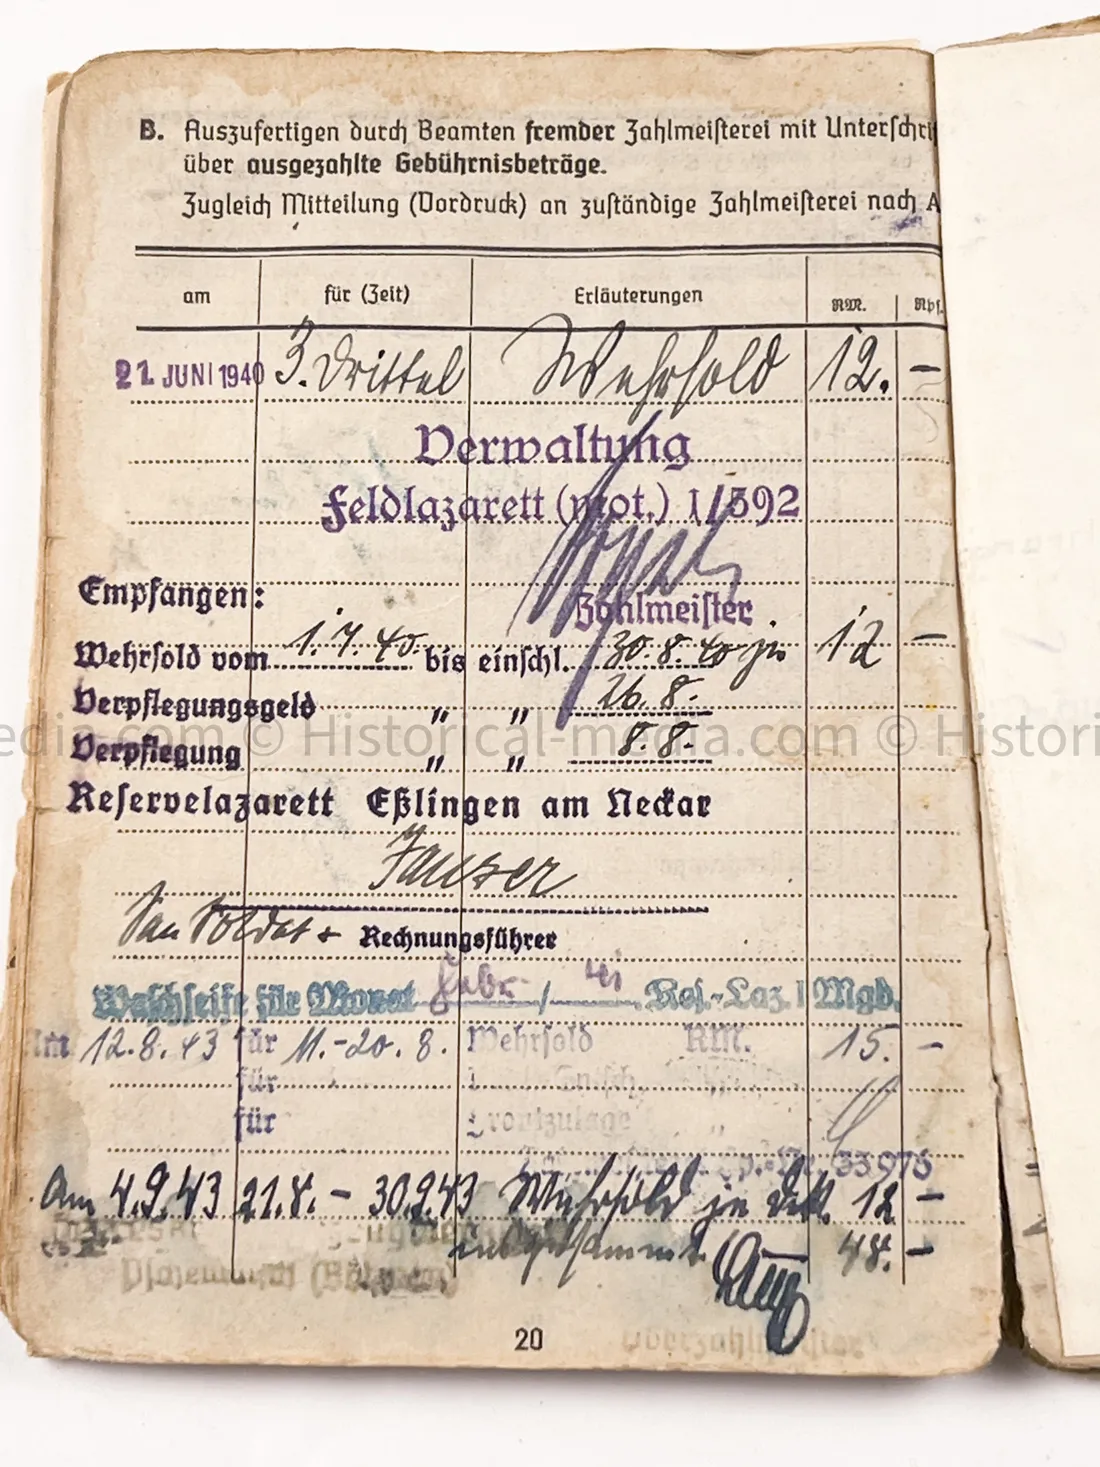 B. Auszufertigen durch Beamten fremder Zahlmeisterei mit Unterschri
über ausgezahlte Gebührnisbeträge.
Zugleich Mitteilung (Vordruck) an zuständige Zahlmeisterei nach A
am für (Zeit) Erläuterungen RM. Rpf.
21. JUNI 1940 3. Drittel Wehrsold 12. –
Verwaltung
Feldlazarett (mot.) 1/592
Empfangen:
Zahlmeister
Wehrsold vom 1.7.40. bis einschl. 30.8.40 je 12 –
Verpflegungsgeld " " 26.8.
Verpflegung " " 8.8.
edia.com © Historical-media.com © Histori
Reservelazarett Eßlingen am Neckar
San Soldat + Rechnungsführer
Waschseife für Monat Febr / 41 Res.-Laz. 1 Mgb.
Am 12.8.43 für 11.-20.8. Wehrsold RM. 15. –
für
für Frontzulage "
Am 4.9.43 21.8. – 30.9.43 Wehrsold je Dekt. 12 –
insgesammt 48. –
20
Oberzahlmeister